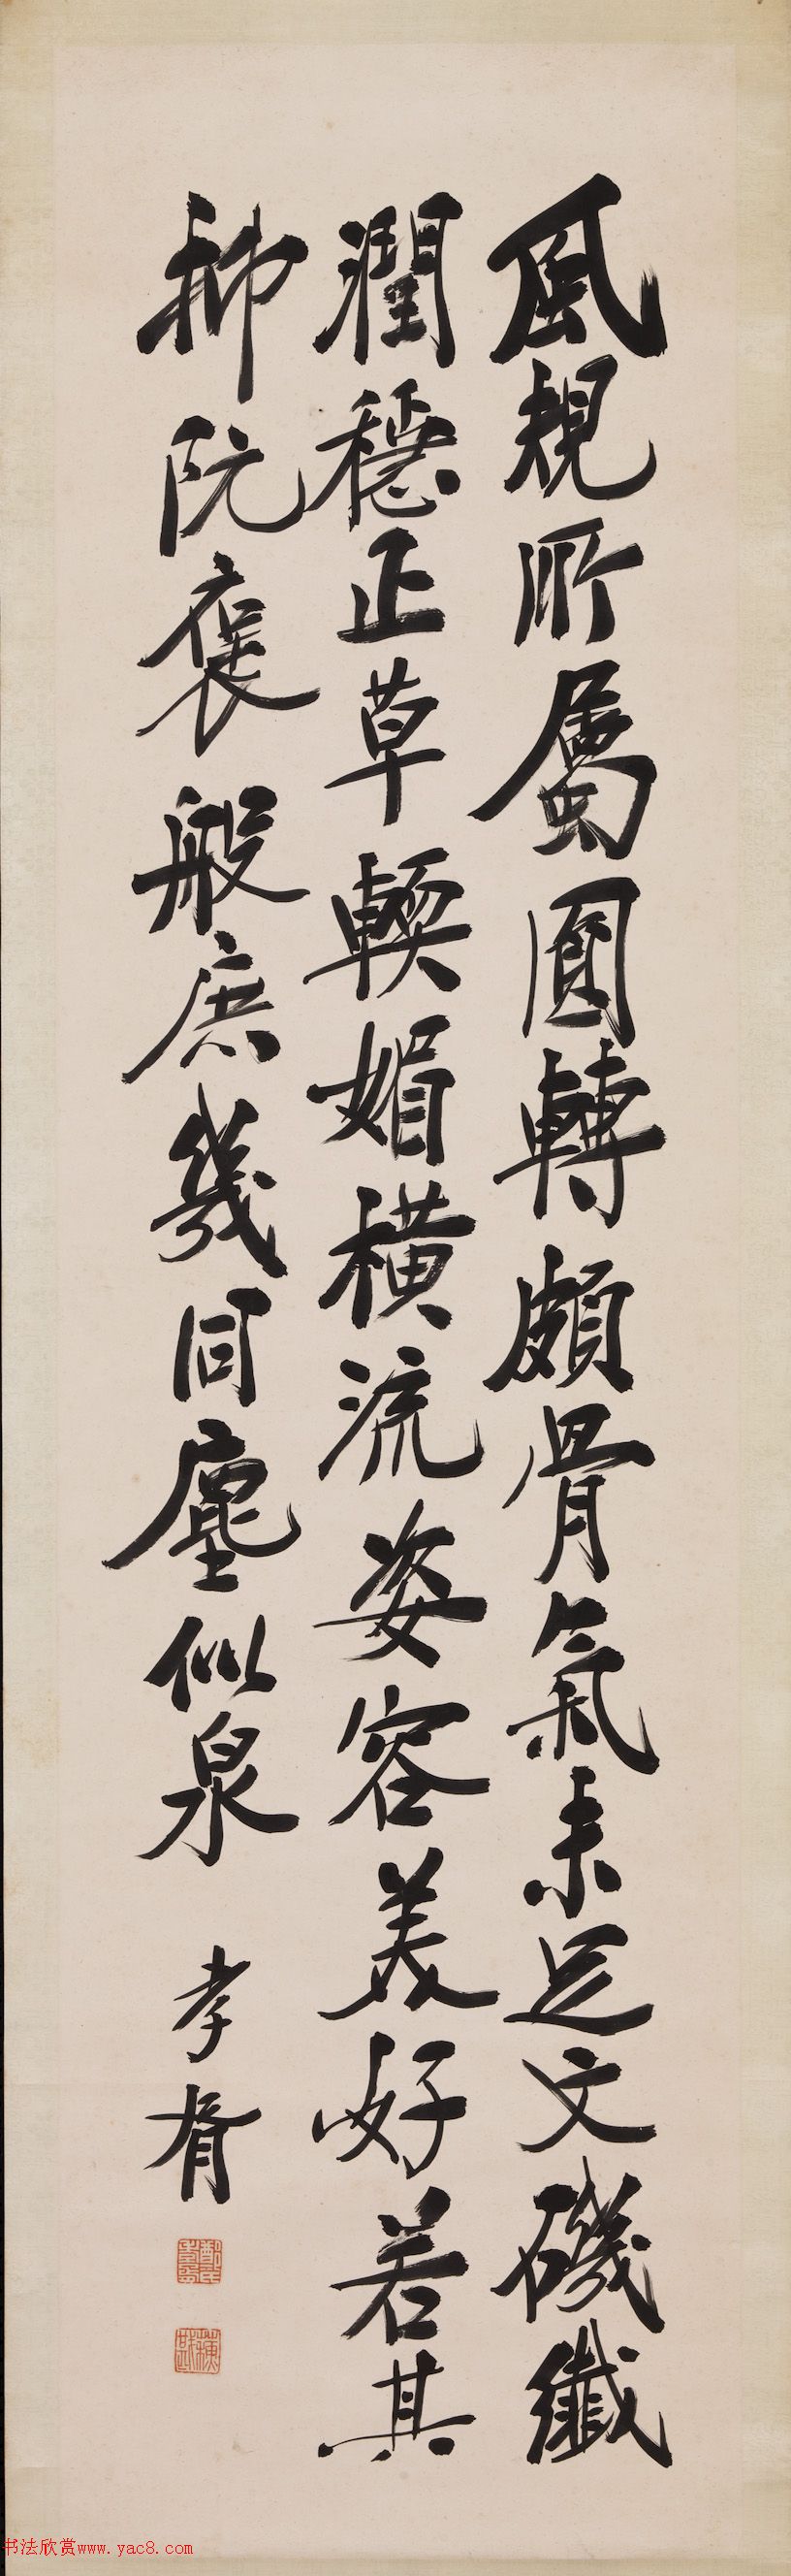 風規所屬圓轉頗骨氣未足文磯纖
潤穩正草輭媚橫流姿容美好若其
抑阮褒般庶幾同塵似泉
孝胥
书法欣赏www.yac8.com